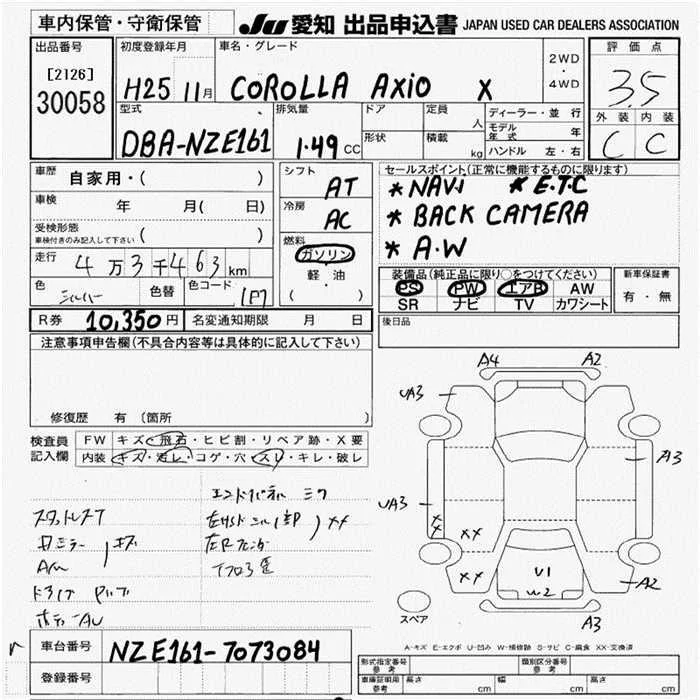 車内保管・守衛保管 JU 愛知 出品申込書 JAPAN USED CAR DEALERS ASSOCIATION
出品番号 初度登録年月 車名・グレード 2WD・4WD 評価点
[2126] 30058 H25 11月 COROLLA AXIO X 3.5
型式 排気量 ドア 定員 人 ディーラー・並行 外装 内装
DBA-NZE161 1.49 CC 形状 積載 kg モデル年式 年 C C
ハンドル 左・右
車歴 自家用・( ) シフト AT セールスポイント(正常に機能するものに限ります)
車検 年 月( 日) 冷房 AC * NAVi * E.T.C
受検形態 * BACK CAMERA
車検付きのみ記入して下さい ( ) 燃料 ガソリン * A.W
走行 4万3千463km 軽・油 装備品(純正品に限り○をつけてください) 新車保証書
色 シルバー 色替 色コード 1F7 ( ) PS PW エアB AW 有・無
SR ナビ TV カワシート
R券 10,350円 名変通知期限 月 日 後日品
注意事項申告欄(不具合内容等は具体的に記入して下さい)
修復歴 有 〔箇所 〕
検査員 FW キズ・飛石・ヒビ割・リペア跡・X要
記入欄 内装 キズ・汚レ・コゲ・穴・スレ・キレ・破レ
A4 A2
UA3
A3
UA3
XX
XX
XX
U1
W2
A2
A3
スペア
スタッドレス7
XX
A-キズ E-エクボ U-凹み W-補修跡 S-サビ C-腐食 XX-交換済
車台番号 NZE161-7073084
登録番号
形式指定番号 参考 類別区分番号 参考
車庫証明用 参考 長さ cm 幅 cm 高さ cm